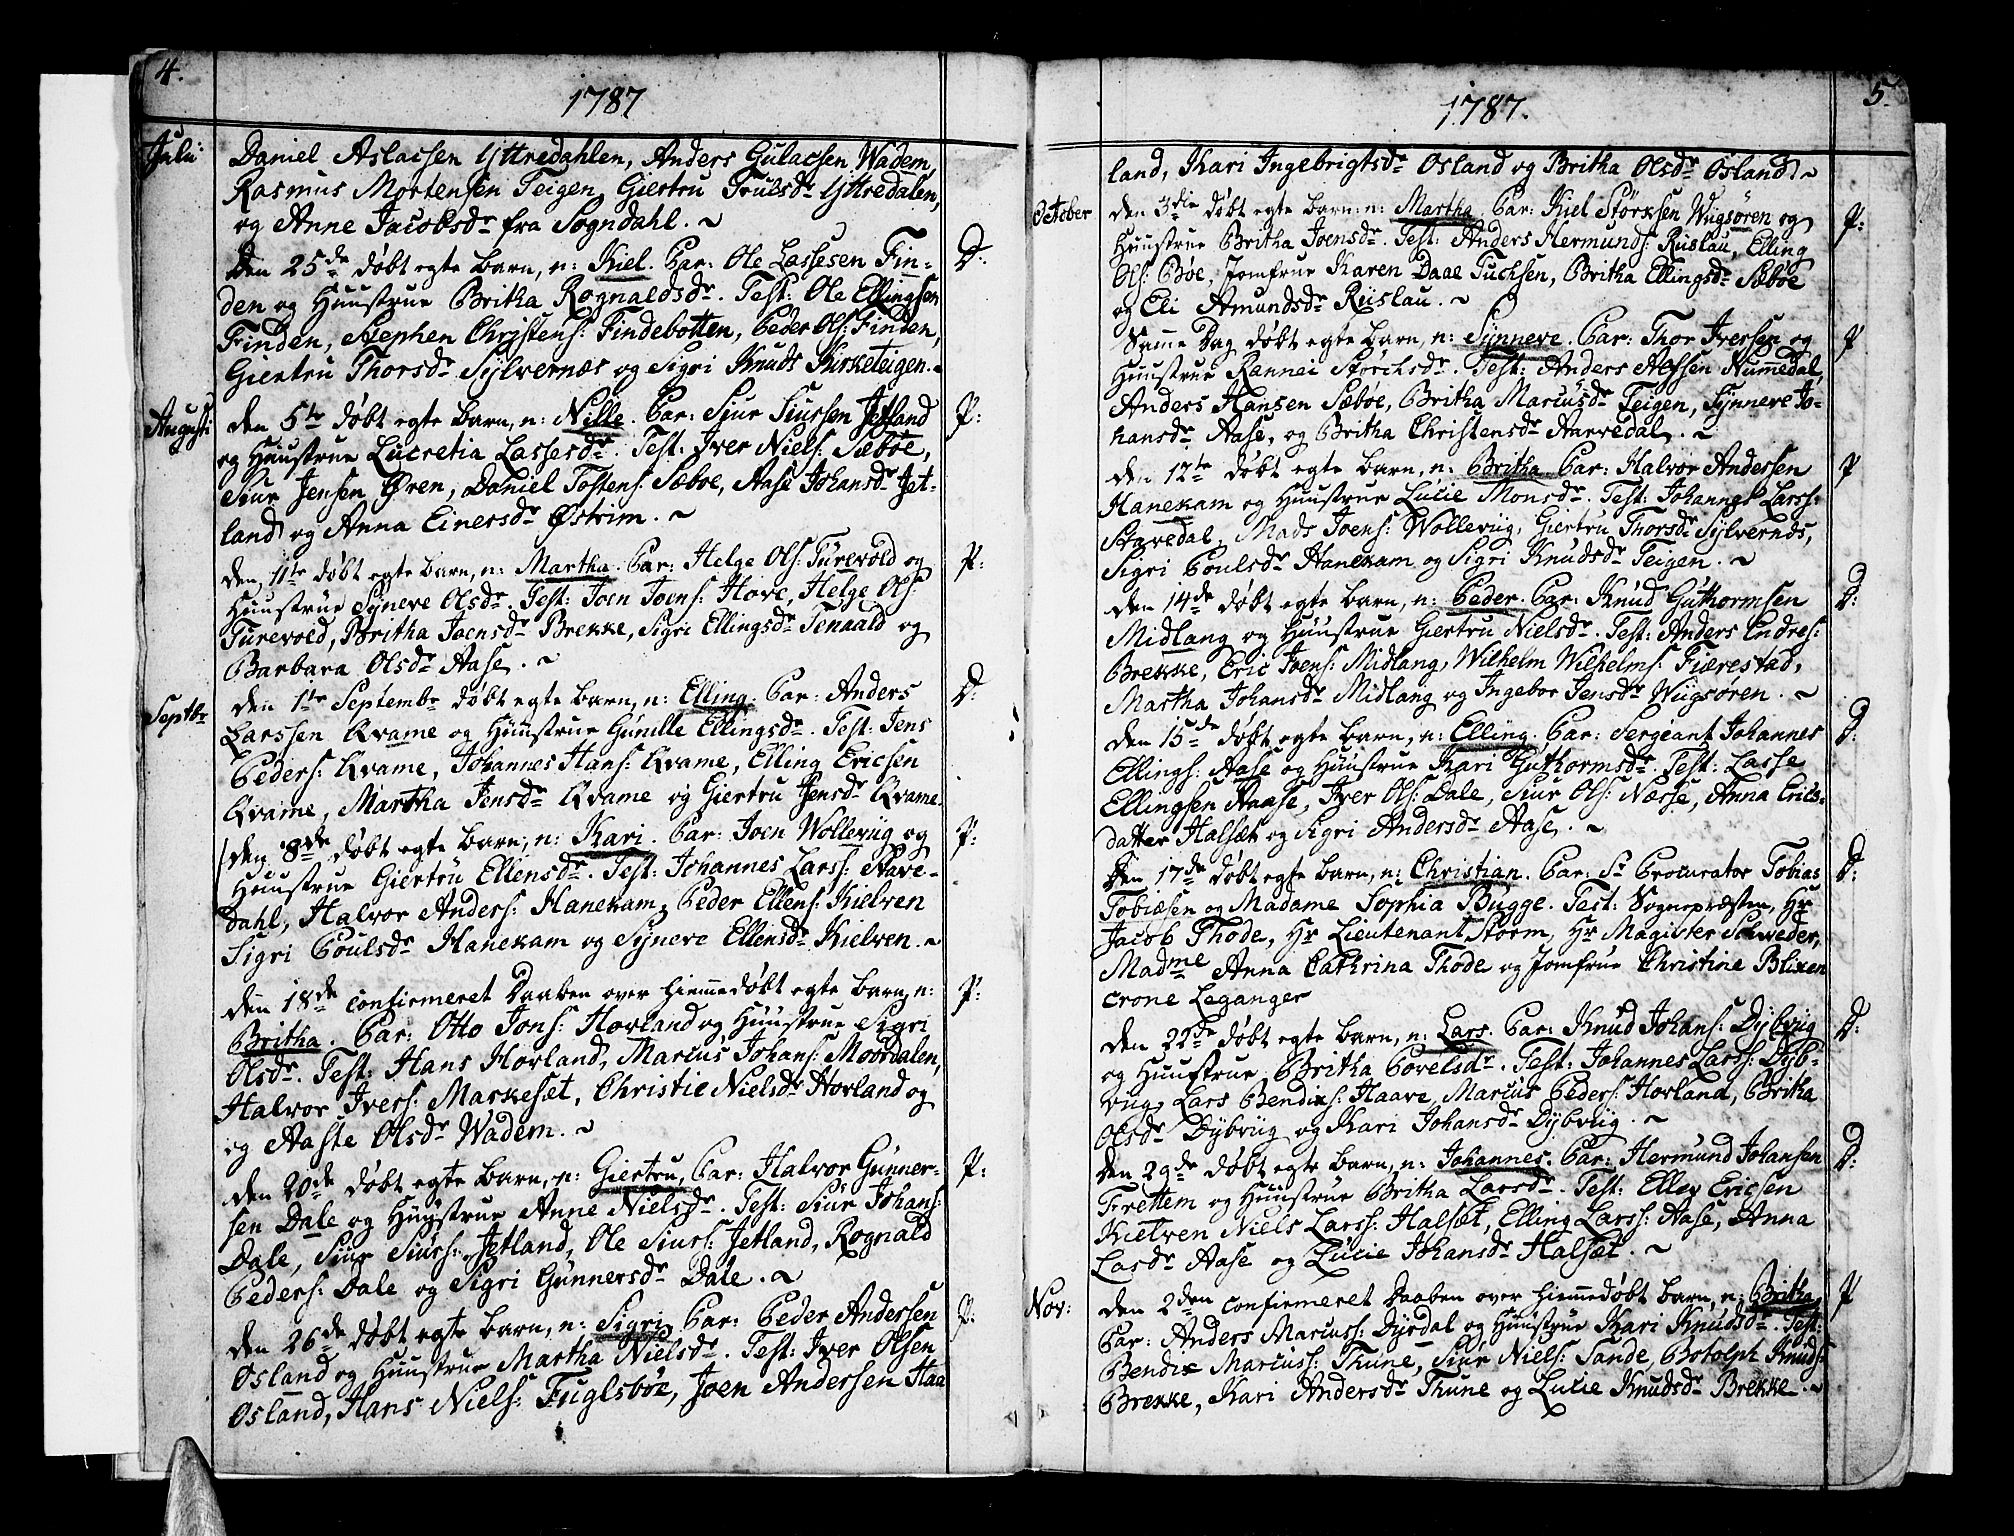 4.
1787
Julii Daniel Aslacsen Yttredahlen, Anders Gulacsen Wadem,
Rasmus Mortensen Teigen, Giertru Trulsdr Yttredalen,
og Anne Jacobsdr fra Sogndahl. ~
Den 25de døbt egte barn, n: Kiel. Par: Ole Lassesen Fin- D:
den og Huustrue Britha Rognaldsdr. Test: Ole Ellingsen
Finden, Stephen Christens: Findebotten, Peder Ols: Finden,
Giertru Thorsdr Sylvernæs og Sigri Knuds Kirketeigen. ~
August: den 5te døbt egte barn, n: Nille. Par: Siur Siurssen Jetland P:
og Huustrue Lucretia Lassesdr. Test: Iver Niels: Sæbøe,
Siur Jensen Øren, Daniel Tostens: Sæboe, Aase Johansdr Jet-
land og Anna Einersdr Østrim. ~
den 11te døbt egte barn, n: Martha. Par: Helge Ols: Turevold og P:
Huustrue Synere Olsdr. Test: Joen Joens: Hove, Helge Ols:
Turevold, Britha Joensdr Brekke, Sigri Ellingsdr Tenaald og
Barbara Olsdr Aase. ~
Septbr den 1te Septembr døbt egte barn, n: Elling. Par: Anders D:
Larssen Kvame og Huustrue Gunille Ellingsdr. Test: Jens
Peders: Kvame, Johannes Hans: Kvame, Elling Ericsen
Kvame, Martha Jensdr Kvame og Giertru Jensdr Kvame.
den 8de døbt egte barn, n: Kari. Par: Joen Wolleviig og P:
Huustrue Giertru Ellensdr. Test: Johannes Larss: Stave-
dahl, Halvor Anders: Hanekam, Peder Ellens: Kielven
Sigri Poulsdr Hanekam og Synere Ellensdr Kielven. ~
den 18de confirmeret Daaben over hiemmedøbt egte barn, n: P:
Britha. Par: Otto Jons: Hovland og Huustrue Sigri
Olsdr. Test: Hans Hovland, Marcus Johans: Moordalen,
Halvor Ivers: Maskesæt, Christie Nielsdr Hovland og
og Aaste Olsdr Wadem. ~
den 20de døbt egte barn, n: Giertru, Par: Halvor Gunner- P:
sen Dale og Huustrue Anne Nielsdr. Test: Siur Johans:
Dale, Siur Siurs: Jetland, Ole Siurs: Jetland, Rognald
Peders: Dale og Sigri Gunnersdr Dale. ~
den 26de døbt egte barn, n: Sigri, Par: Peder Andersen P:
Osland og Huustrue Martha Nielsdr. Test: Iver Olsen
Osland, Hans Niels: Fuglsbøe, Joen Andersen Haa
5.
1787.
land, Kari Ingebrigtsdr Osland og Britha Olsdr Osland. ~
October den 3die døbt egte barn: n: Martha. Par: Kiel Størksen Wugsøren og P:
Huustrue Britha Joensdr. Test: Anders Hermunds: Riislau, Elling
Ols: Bøe, Jomfrue Karen Daae Tuchsen, Britha Ellingsdr Sæbøe
og Eli Amundsdr Riislau. ~
Samme Dag døbt egte barn, n: Synneve. Par: Thor Iversen og P
Huustrue Rannei Størchsdr. Test: Anders Alfsen Numedal,
Anders Hansen Sæbøe, Britha Marcusdr Teigen, Synneve Jo-
hansdr Aase, og Britha Christensdr Aarvedal. ~
den 12te døbt egte barn, n: Britha. Par: Halvor Andersen P
Hanekam og Huustrue Lucie Monsdr. Test: Johannes Larss:
Stavedal, Mads Joens: Wolleviig, Giertru Thorsdr Sylvernæs,
Sigri Poulsdr Hanekam og Sigri Knudsdr Teigen. ~
den 14de døbt egte barn, n: Peder. Par: Knud Guthormsen D:
Midlang og Huustrue Giertru Nielsdr. Test: Anders Endres:
Brekke, Eric Joens: Midlang, Wilhelm Wilhelms: Fiærestad,
Martha Johansdr Midlang og Ingebor Jensdr Wugsøren. ~
den 15de døbt egte barn, n: Elling. Par: Sergeant Johannes D:
Ellings: Aase og Huustrue Kari Guthormsdr. Test: Lasse
Ellingsen Aaase, Iver Ols: Dale, Siur Ols: Næsse, Anna Erics-
datter Halsæt og Sigri Andersdr Aase. ~
Den 17de døbt egte barn, n: Christian. Par: Sr Procurator Tobias D:
Tobiæsen og Madame Sophia Bugge. Test: Sognepræsten, Hr
Jacob Thode, Hr Lieutenant Storm, Hr Magister Schweder,
Madme Anna Cathrina Thode og Jomfrue Christine Blixen
crone Leganger
den 22de døbt egte barn, n: Lars. Par: Knud Johans: Dybvug D:
og Huustrue Britha Povelsdr. Test: Johannes Larss: Dyb-
vug, Lars Bendixs: Haave, Marcus Peders: Hovland, Britha
Olsdr Dybvug og Kari Johansdr Dybvug. ~
den 29de døbt egte barn, n: Johannes. Par: Hermund Johansen D:
Frettem og Huustrue Britha Larsdr. Test: Ellev Ericsen
Kielven Niels Larss: Halsæt, Elling Larss: Aase, Anna
Lasdr Aase og Lucie Johansdr Halsæt. ~
Nov: den 2den confirmeret Daaben over hiemmedøbt barn, n: Britha, P
Par: Anders Marcuss: Dyrdal og Huustrue Kari Knudsdr. Test:
Bendix Marcuss: Thune, Siur Niels: Sande, Botolph Knuds:
Brekke, Kari Andersdr Thune og Lucie Knudsdr Brekke. ~